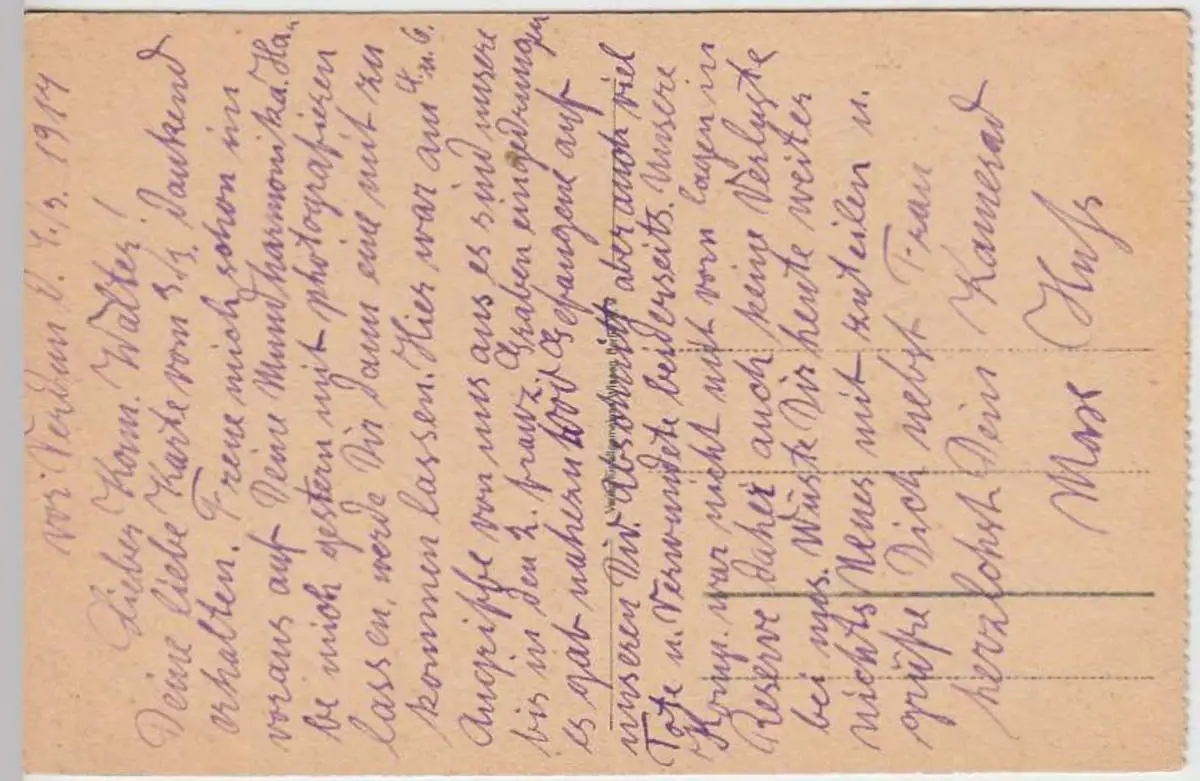 vor Verdun d. 9./3. 1917
Lieber Kam. Walter!
Deine liebe Karte vom 3/3. dankend
erhalten. Freue mich schon im
voraus auf Deine Mundharmonika. Ha-
be mich gestern mit photografieren
lassen, werde Dir dann eine mit zu
kommen lassen. Hier war am 4. u. 6.
Angriffe von uns aus es sind unsere
bis in den 2. franz. Graben eingedrungen
es gab Gefangene auf
unseren Div. Abschnitt aber auch viel
Tote u. Verwundete beiderseits. Unsere
Komp. war nicht mit vorn lagen in
Reserve daher auch keine Verluste
bei uns. Wüste Dir heute weiter
nichts Neues mit zuteilen u.
grüße Dich nebst Frau
herzlichst Dein Kamerad
Max Huss